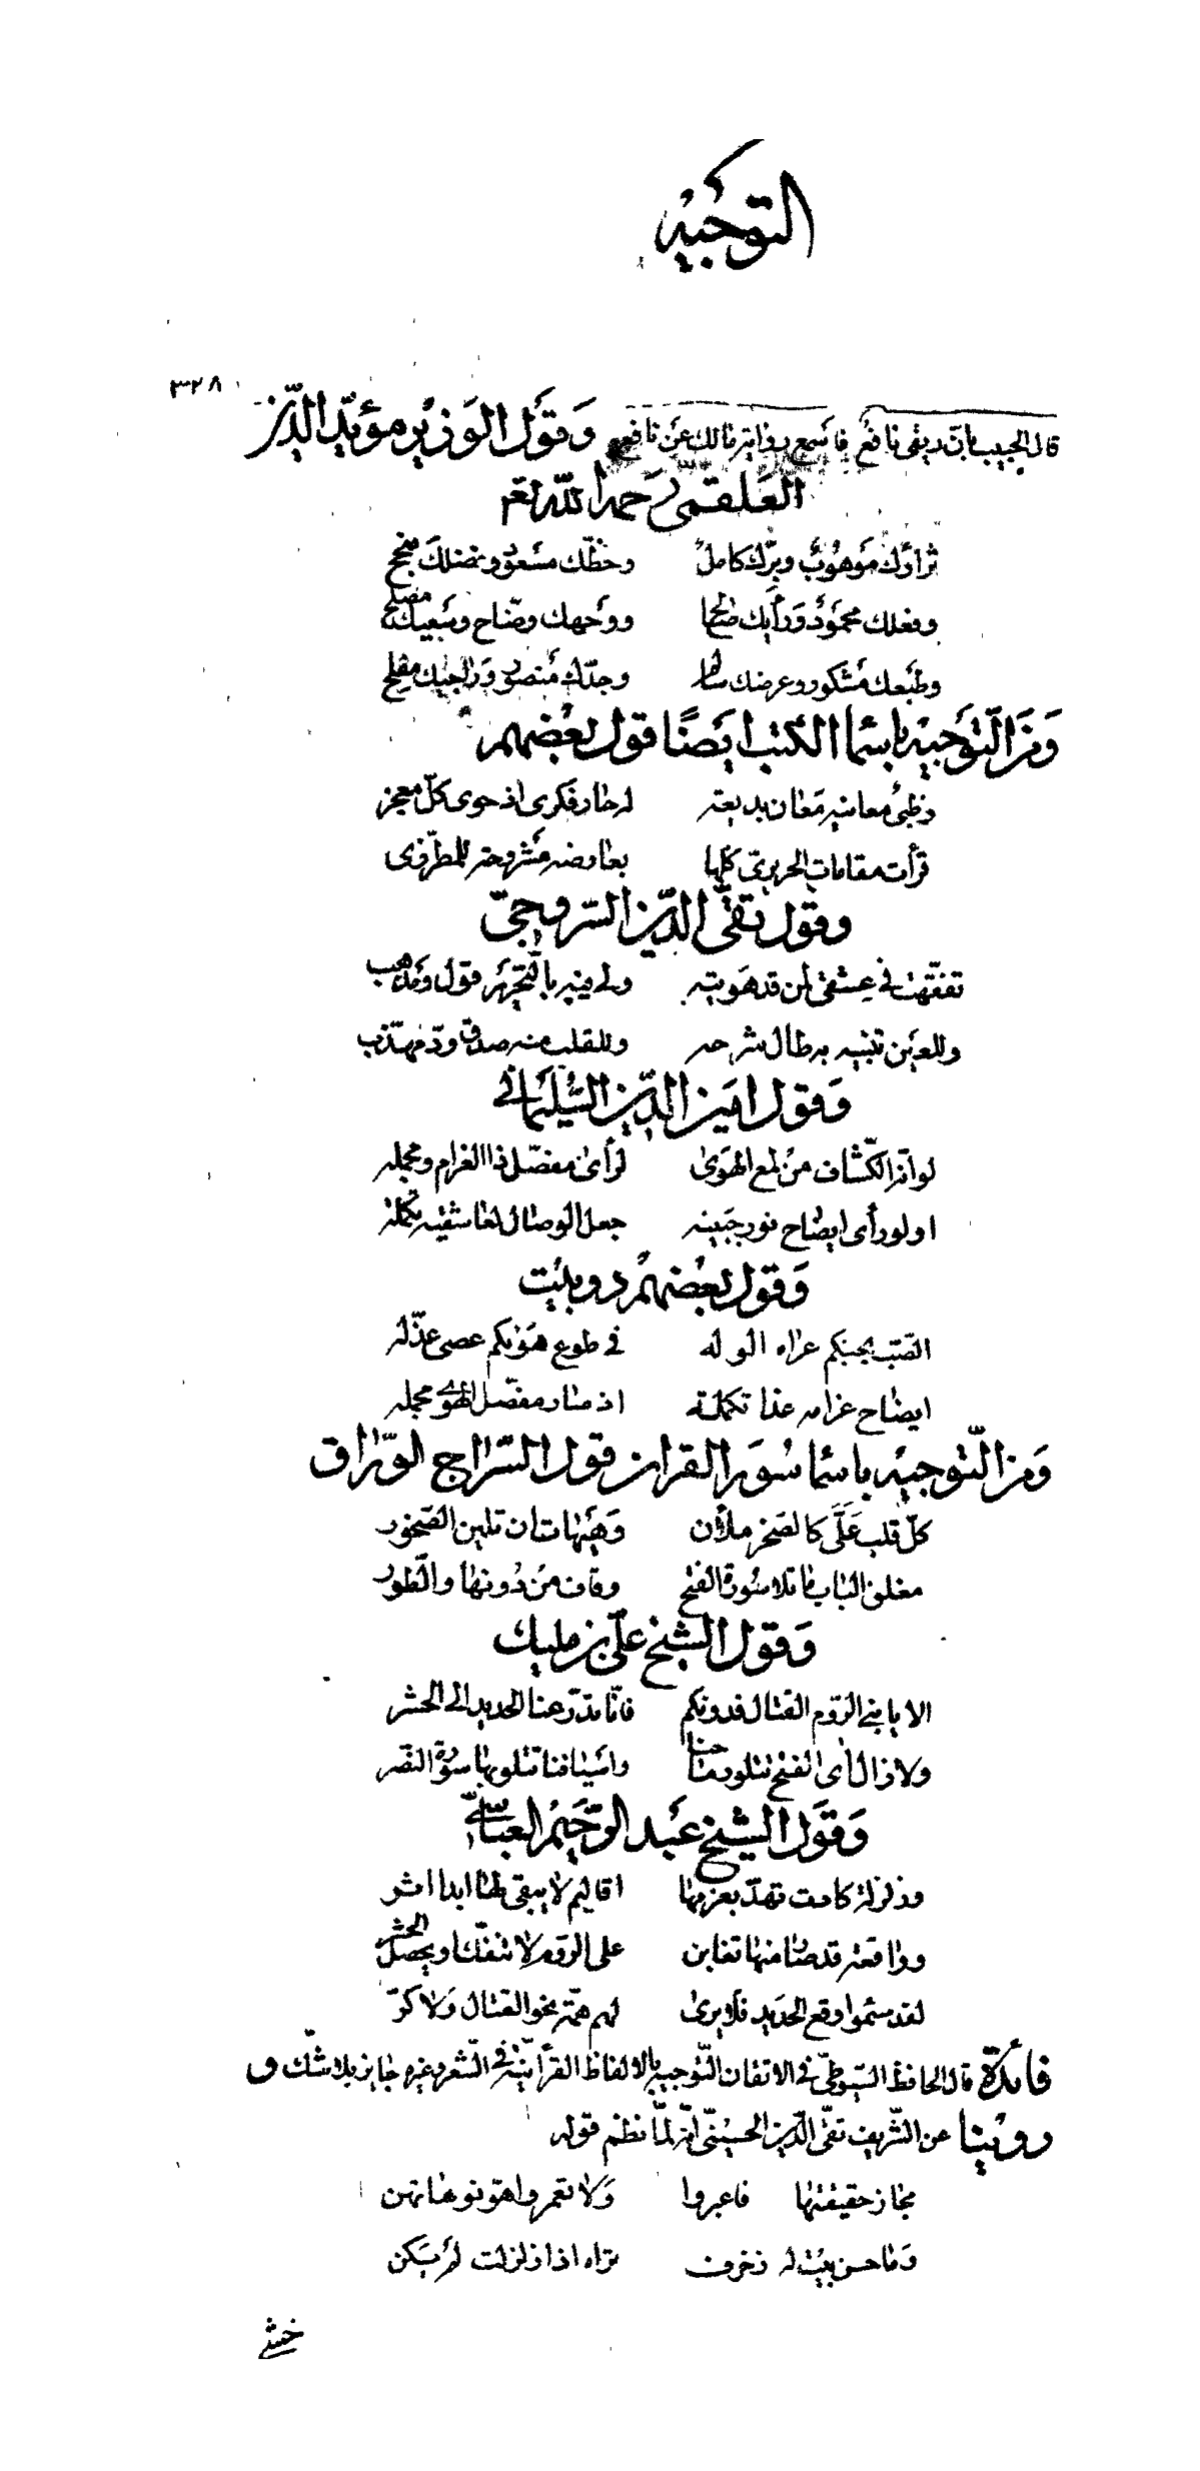 التوجيه
٣٢٨
قال الحبيب بان ريقى نافع فاسمع رواية مالك عن نافع وَقَول الوَزير مؤيّد الدّين
العَلقميّ رَحمه الله تعَ
ثراؤك مَوهُوبٌ وبرّك كاملٌ وحظّك مسَعود وفضلك منجح
وفعلك محمَودٌ وَرَأيك صَالح ووَجهك وضّاح وسَعيك مصلح
وطبَعك مشَكور وعرضك سالم وجدّك مَنصور وَراجيك مفلح
وَمنَ التّوَجيْه باسْما الكتب ايَضًا قول بعْضهم
وظبيُ معانيه مَعان بديعة له حار فكرى اذ حوى كلّ معجز
قرأت مقامات الحريرىّ كلها بعارضه مَشروحة للمطرّزى
وقول تقىّ الدّين السّروجىّ
تفقّهت فى عِشقى لمن قد هَويته ولى فيه بالتّحرَير قَول وَمذهب
وللعَين تنبيه به طال شرحه وللقلب منه صدق ودّ مهذّب
وَقول امَين الدّين السّليَمَانى
لو انّ الكشّاف منْ لمع الهَوى لرَأى مفصّل ذا الغرام ومجمله
اولو رأى ايضاح نور جبَينه جعل الوصال لعاشقيه تكمله
وَقول بعْضهمْ دوبيْت
الصّب بحبكم عراه الوله فى طوع هَوَاكم عصى عذّله
ايضاح غرامه غدا تكملة اذ صار مفصّل الهَوى مجمله
وَمن التّوجيْه باسْما سُوَر القران قول السّراج الورّاق
كلّ قلب عَلَىَّ كالصَخر ملآن وَهَيَهات ان تلين الصّخور
مغلق الباب ما تلا سُورة الفتح وقاف منْ دُونها والطّور
وَقول الشيخ علىّ بن مليك
الا يا بنى الرّوم القتال فدونكم فانّا تدرّعنا الحديد الى الحشر
ولا زال آى الفتح نتلو معنا واسَيافنا تتلو بها سورة النصر
وَقَول الشيخ عَبد الرّحَيْم العبّاسىّ
وزلزلة كادت تهدّ بعزمها اقاليم لا يبقى لها ابدا اثر
وواقعة قد صار منها تغابن على الروم لا تنفكّ او يحصل الحشر
لقد سئموا وقع الحديد فلا يرى لهم همّة نحو القتال وَلا كرّ
فائدَة قال الحافظ السّيوطىّ فى الاتقان التّوَجيه بالالفاظ القرآنيّة فى الشّعر وغيره جايز بلا شكّ و
روينا عن الشّريف تقىّ الدّين الحسيْنىّ انّه لمّا نظم قوله
مجاز حقيقتها فاعبروا وَلا تعمروا هوّنوها تهن
وَما حسن بيْت له زخرف تراه اذا زلزلت لمْ يَكن
خشى